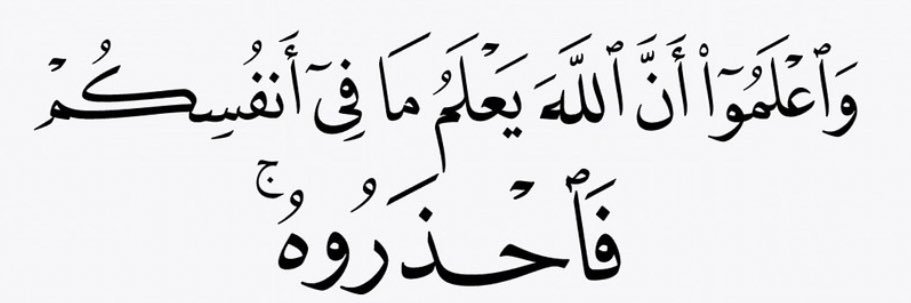 وَٱعْلَمُوٓا۟ أَنَّ ٱللَّهَ يَعْلَمُ مَا فِىٓ أَنفُسِكُمْ
فَٱحْذَرُوهُ ۚ